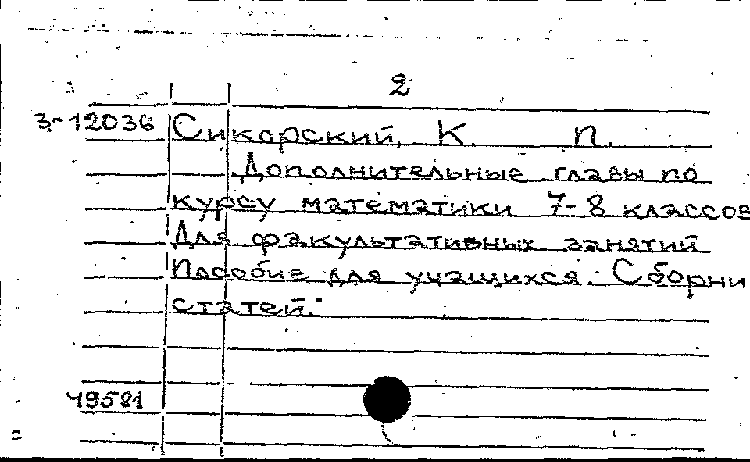 2
3-12036 Сикорский, К. П.
Дополнительные главы по
курсу математики 7-8 классов
Для факультативных занятий
Пособие для учащихся. Сборни
статей.
49581